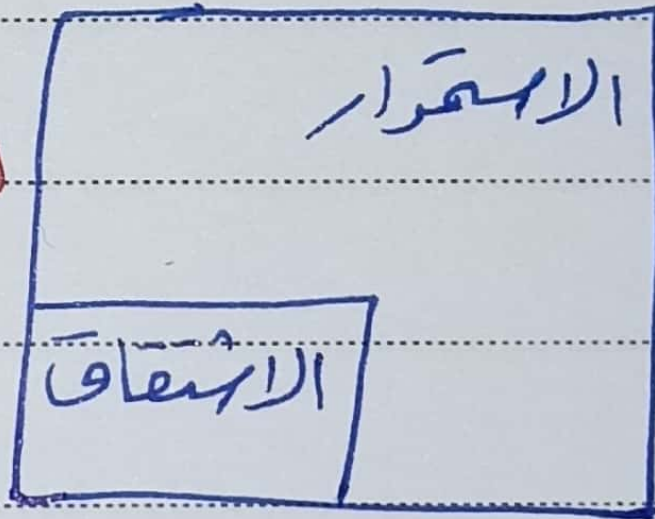 الاستمرار
الاشتقاق